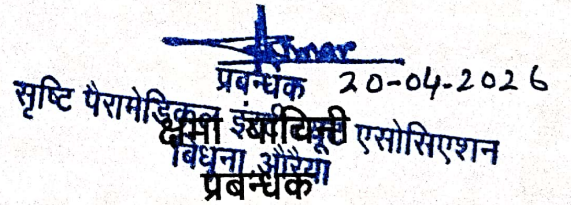 प्रबन्धक 20-04-2026
सृष्टि पैरामेडिकल इंस्टीट्यूट एसोसिएशन
क्षमा
बिधूना औरैया
प्रबन्धक